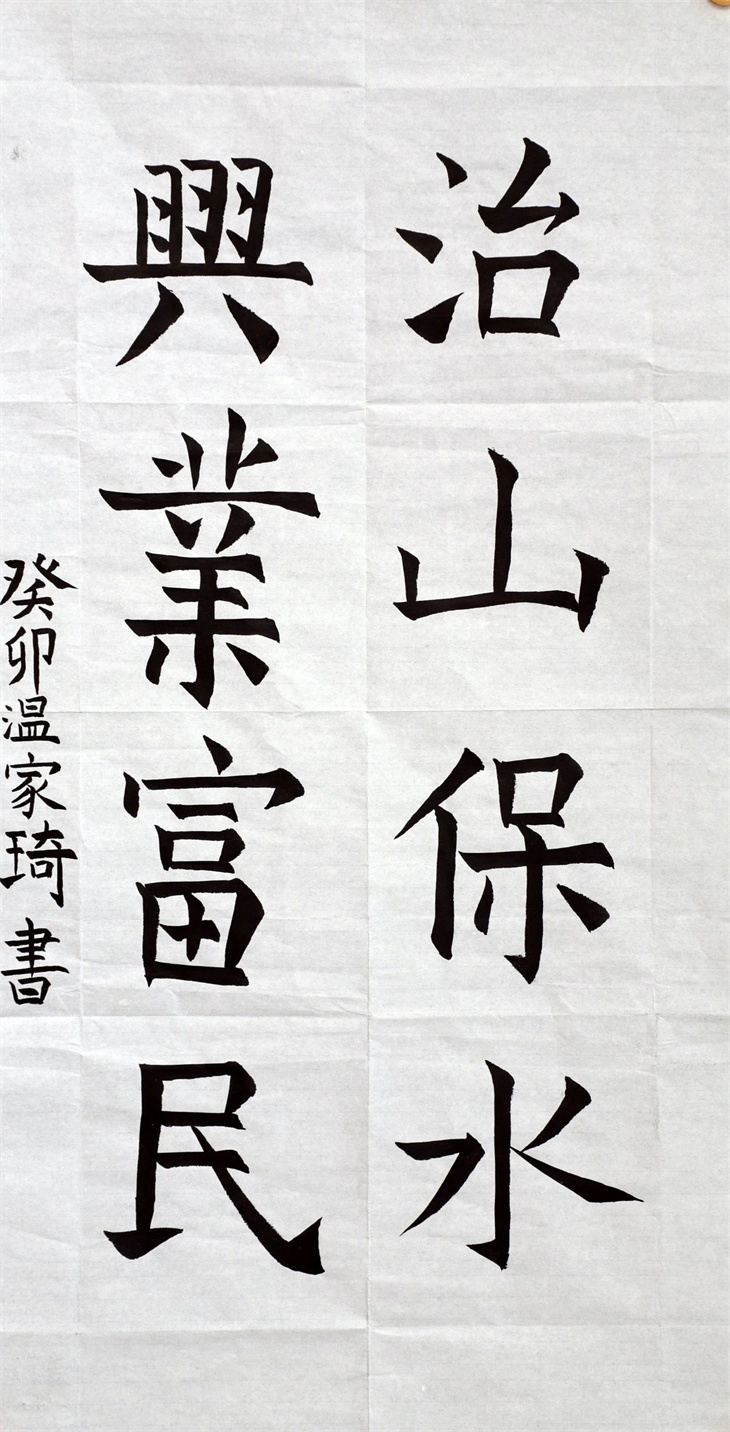 治山保水
興業富民
癸卯溫家琦書